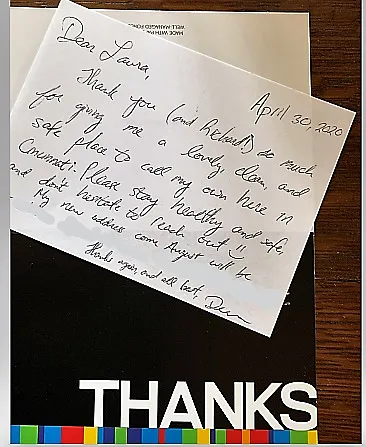 MADE WITH PA
WELL-MANAGED FORE
April 30, 2020
Dear Laura,
Thank you (and Richard!) so much
for giving me a lovely, clean, and
safe place to call my own here in
Cincinnati. Please stay healthy and safe,
and don't hesitate to reach out
My new address come August will be
Thanks again, and all best,
THANKS